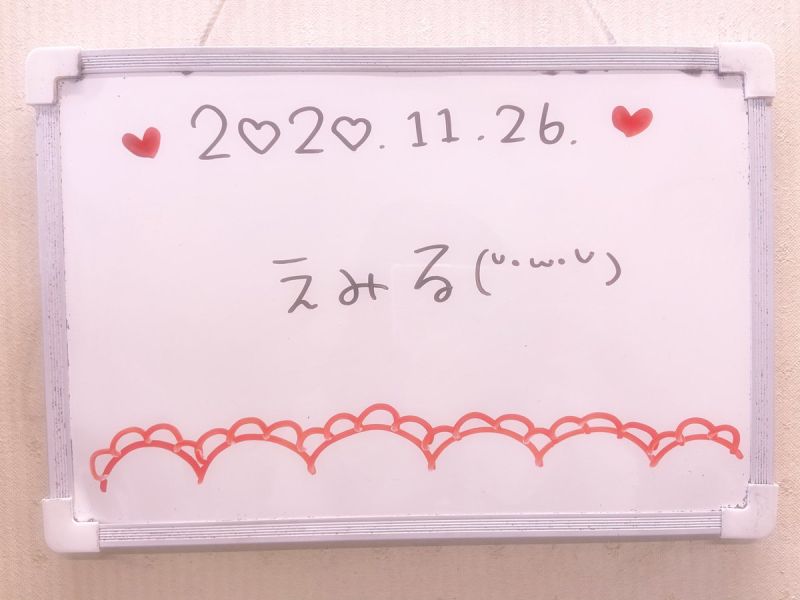 2020.11.26.
えみる(∪・ω・∪)